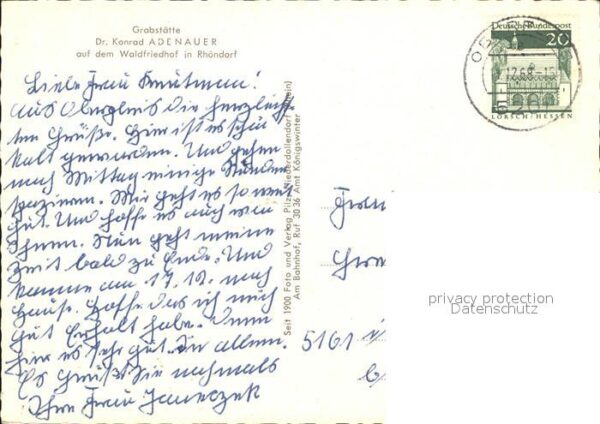 Grabstätte
Dr. Konrad ADENAUER
auf dem Waldfriedhof in Rhöndorf
Liebe Frau
aus die herzlich-
ten Grüße. Hier ist es schon
kalt geworden. Und gehen
nach Mittag einige Stunden
spazieren. Mir geht es so weit
gut. Und hoffe es auch von
Ihnen. Nun geht meine
Zeit bald zu Ende. Und
komme am 17.12. nach
Hause. Hoffe das ich mich
gut erholt habe. Denn
hier es sehr gut. In allem.
Es grüßt Sie nochmals
Ihre Frau Janeczek
Seit 1900 Foto und Verlag Pilz, Niederdollendorf (Rhein)
Am Bahnhof, Ruf 3036 Amt Königswinter
Deutsche Bundespost
20
LORSCH/HESSEN
12.68-15
Frau
5161
privacy protection
Datenschutz